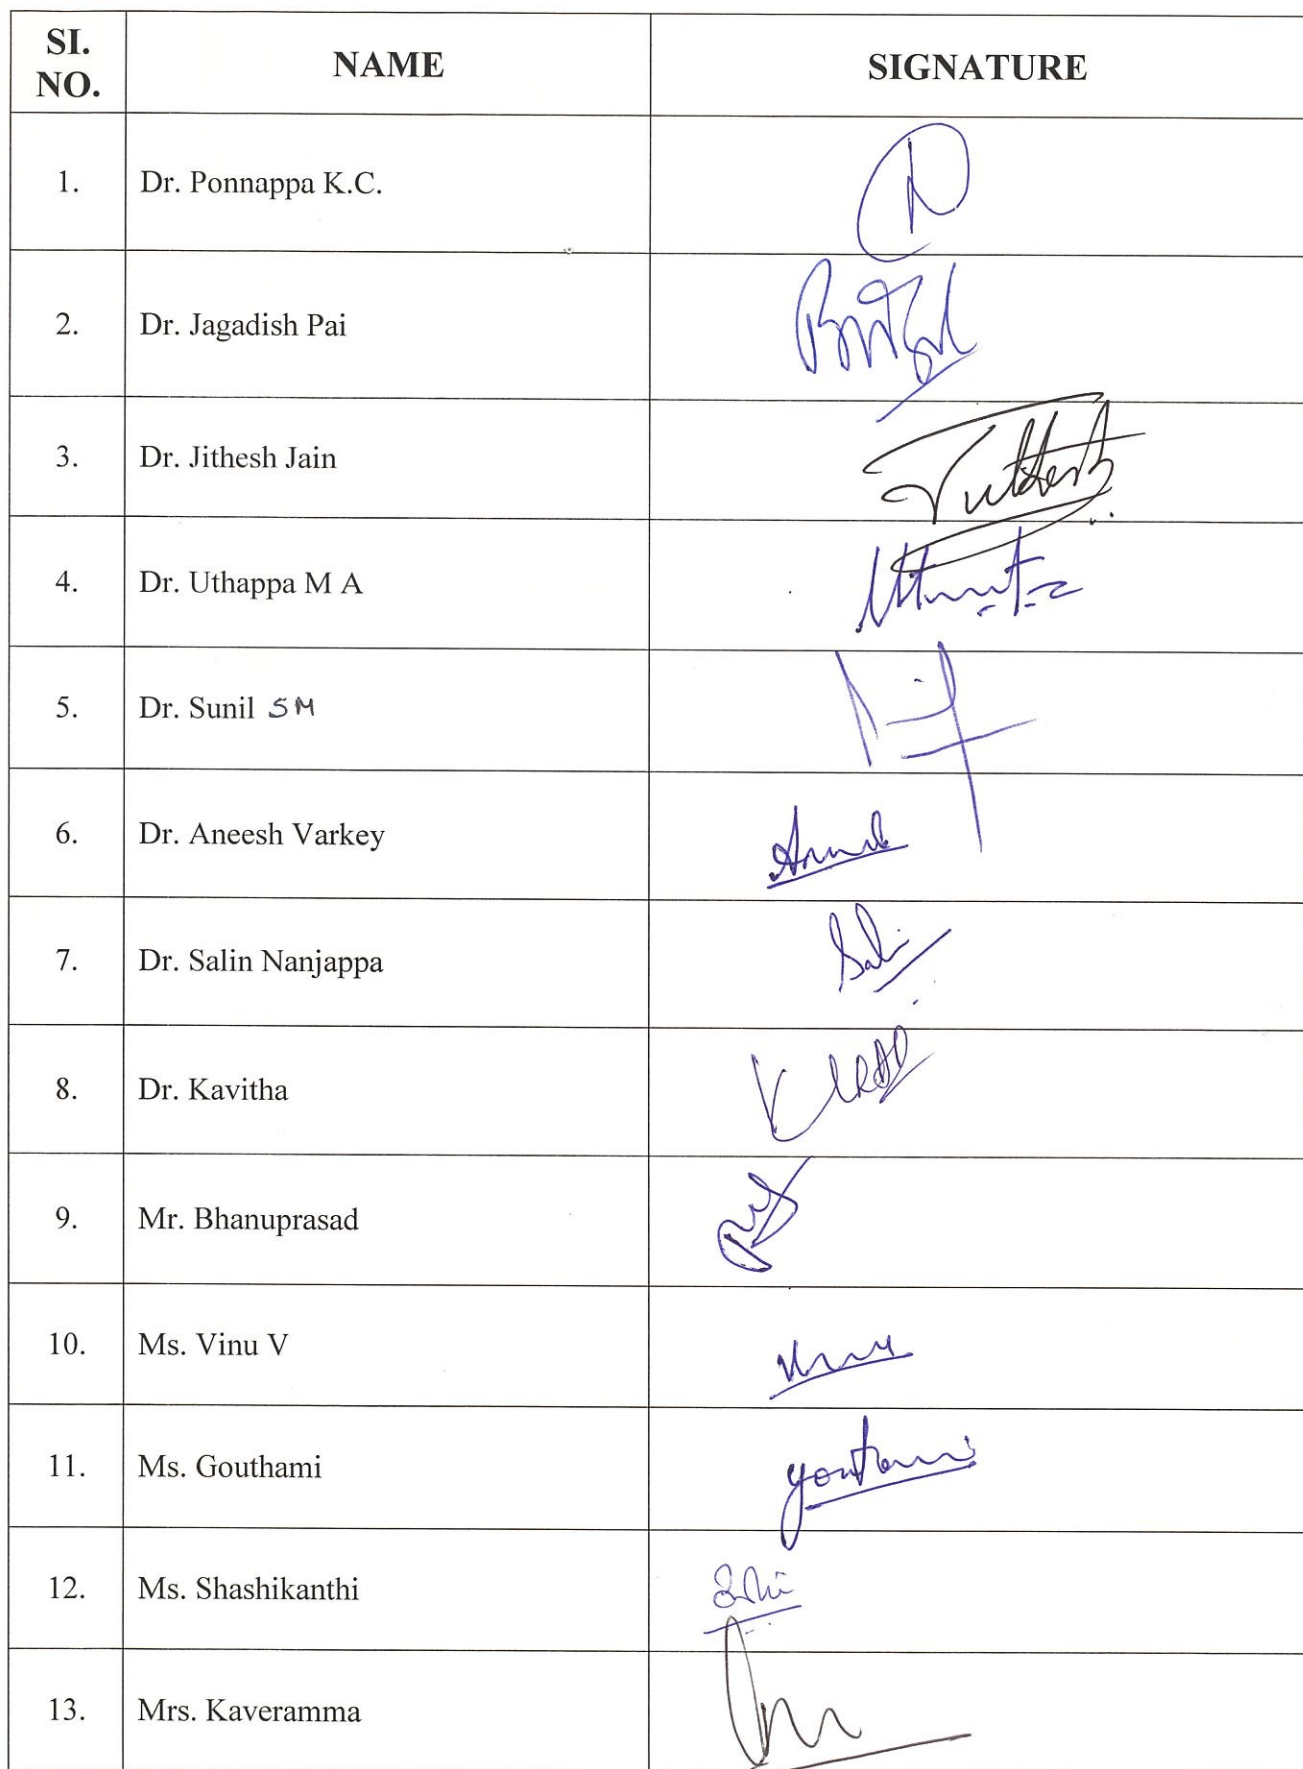 SI. NO. NAME SIGNATURE
1. Dr. Ponnappa K.C.
2. Dr. Jagadish Pai
3. Dr. Jithesh Jain
4. Dr. Uthappa M A
5. Dr. Sunil SM
6. Dr. Aneesh Varkey
7. Dr. Salin Nanjappa
8. Dr. Kavitha
9. Mr. Bhanuprasad
10. Ms. Vinu V
11. Ms. Gouthami
12. Ms. Shashikanthi
13. Mrs. Kaveramma